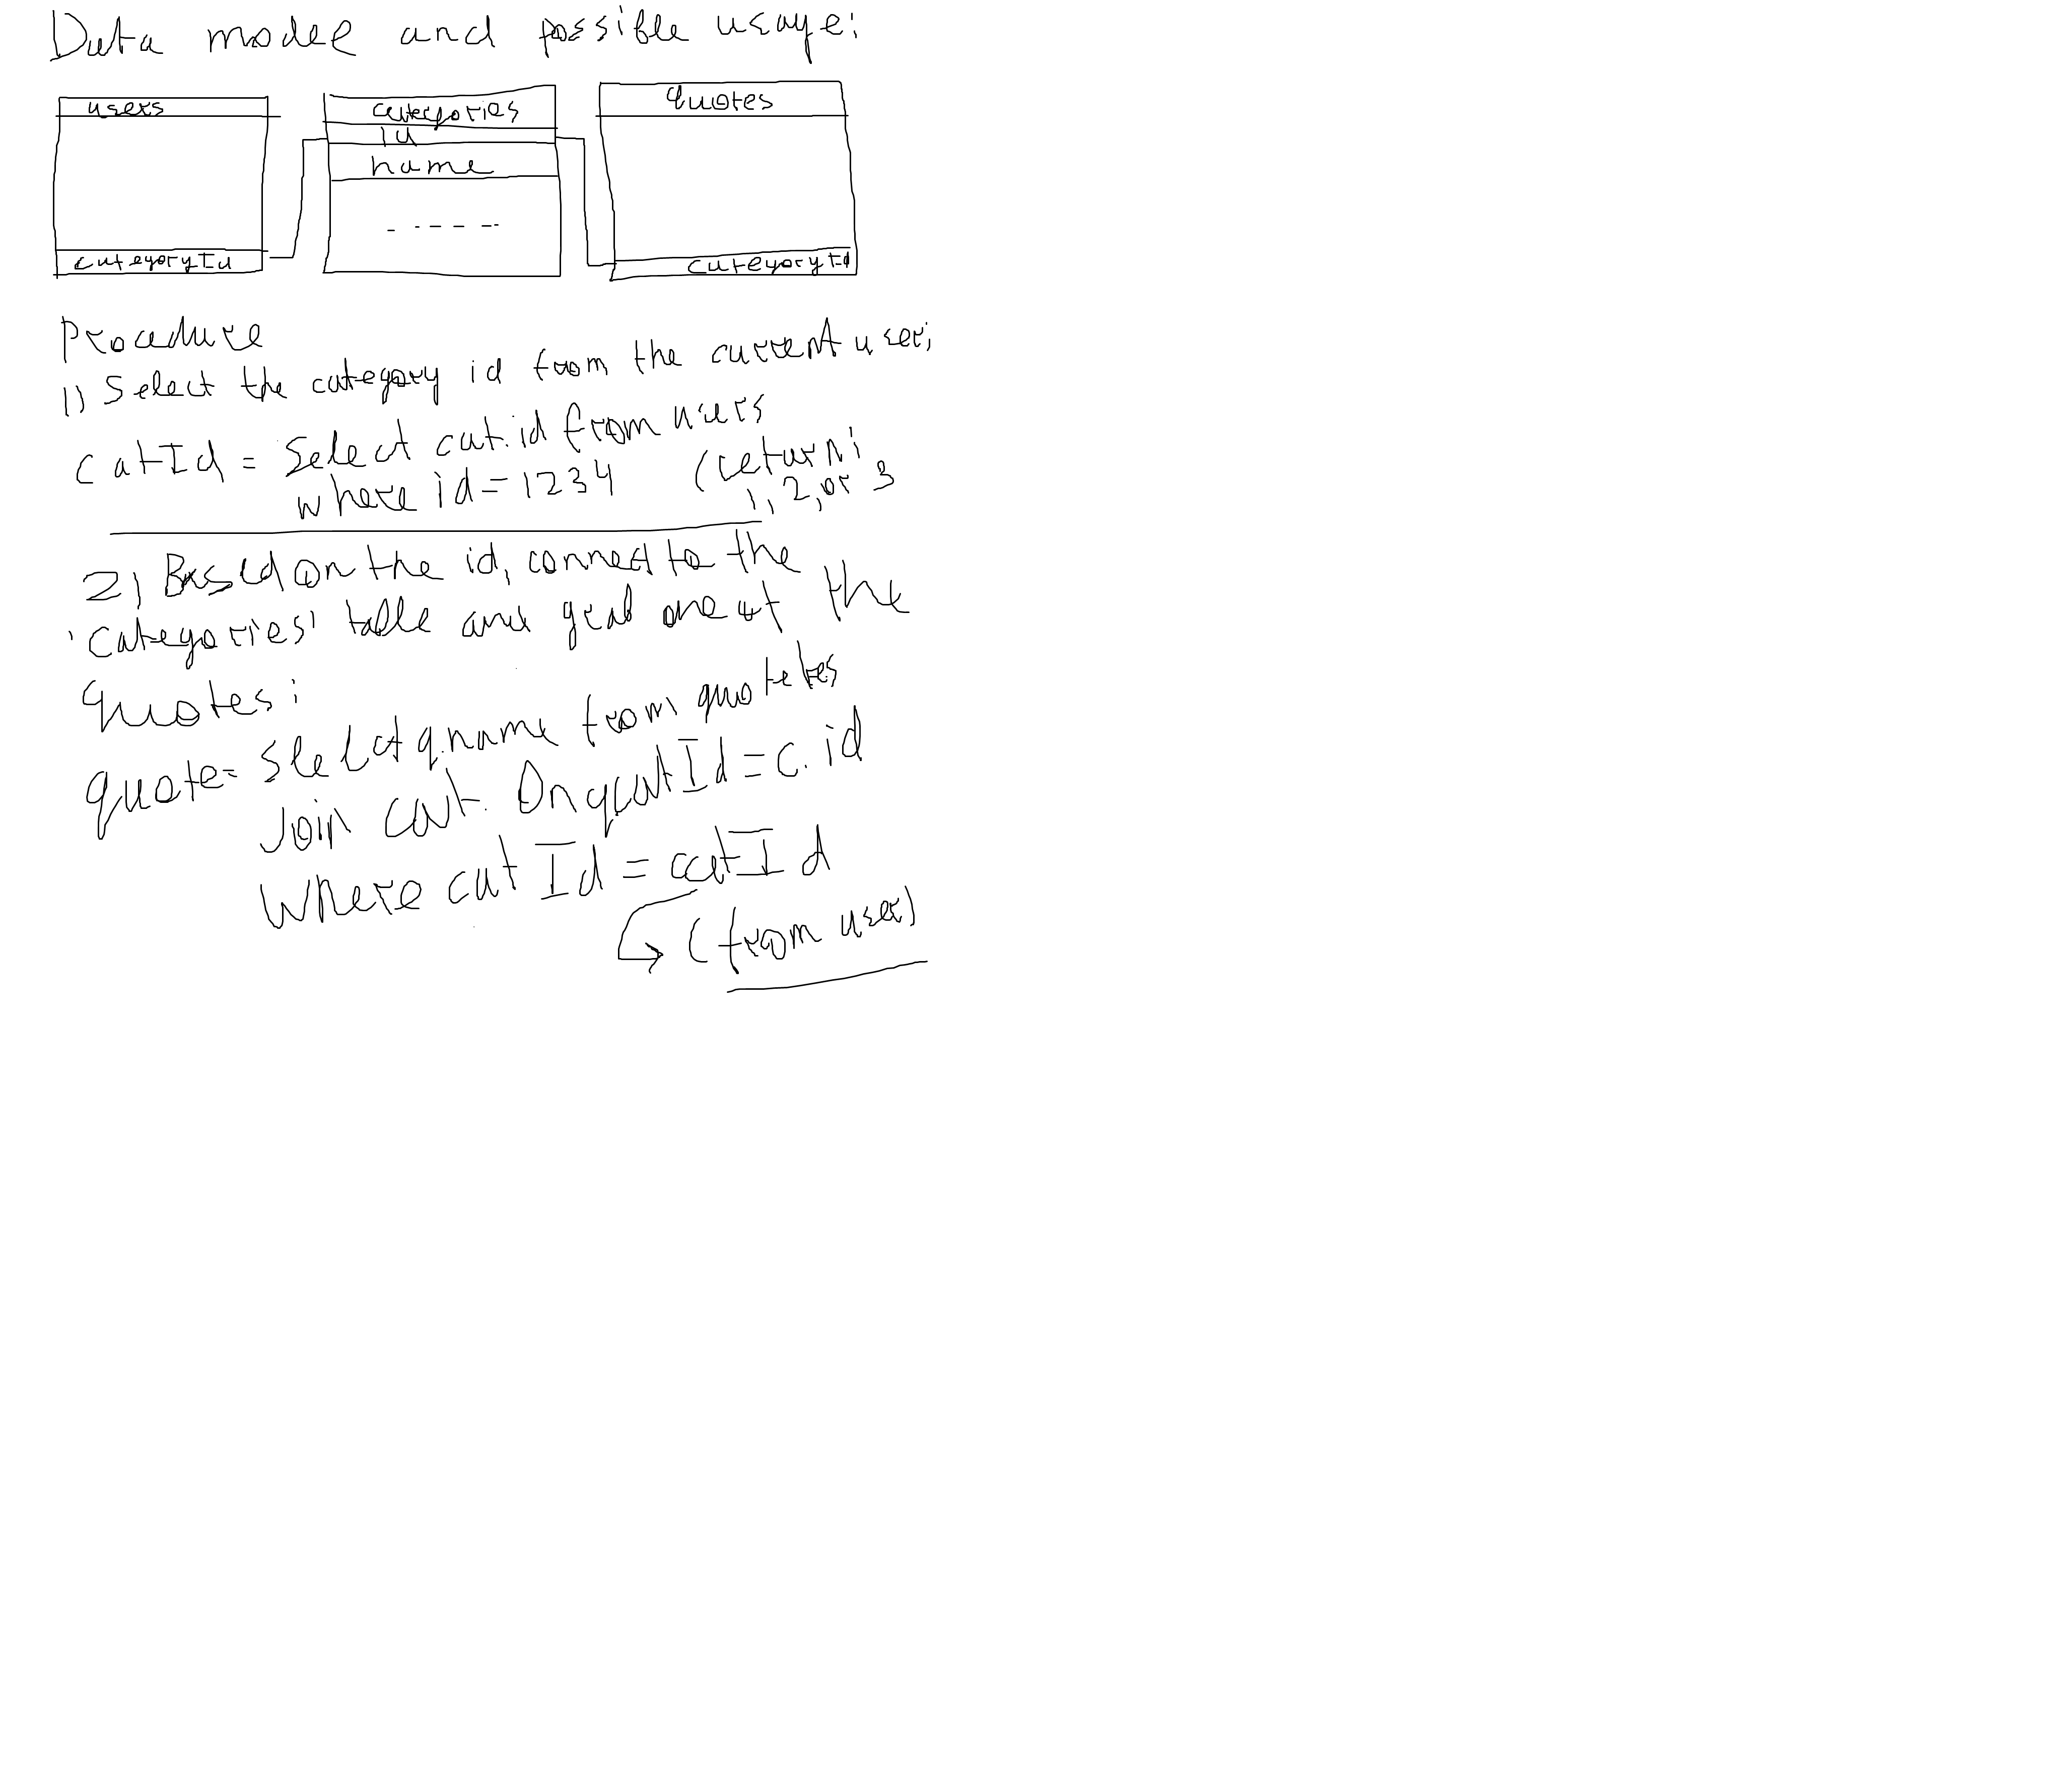 Data model and possible usage:
users
categories
quotes
id
name
- - - - -
categoryId
categoryId
Procedure
1) Select the category id from the current user:
catId = Select cat.id from users
where id=1234 (return:
1, 2, or 3
2) Based on the id, connect to the
'categories' table and grab one of the
quotes:
quote= Slelct q.name from quotetes
Join cat. On qcatId=c.id
Where catId = catId
(from user)